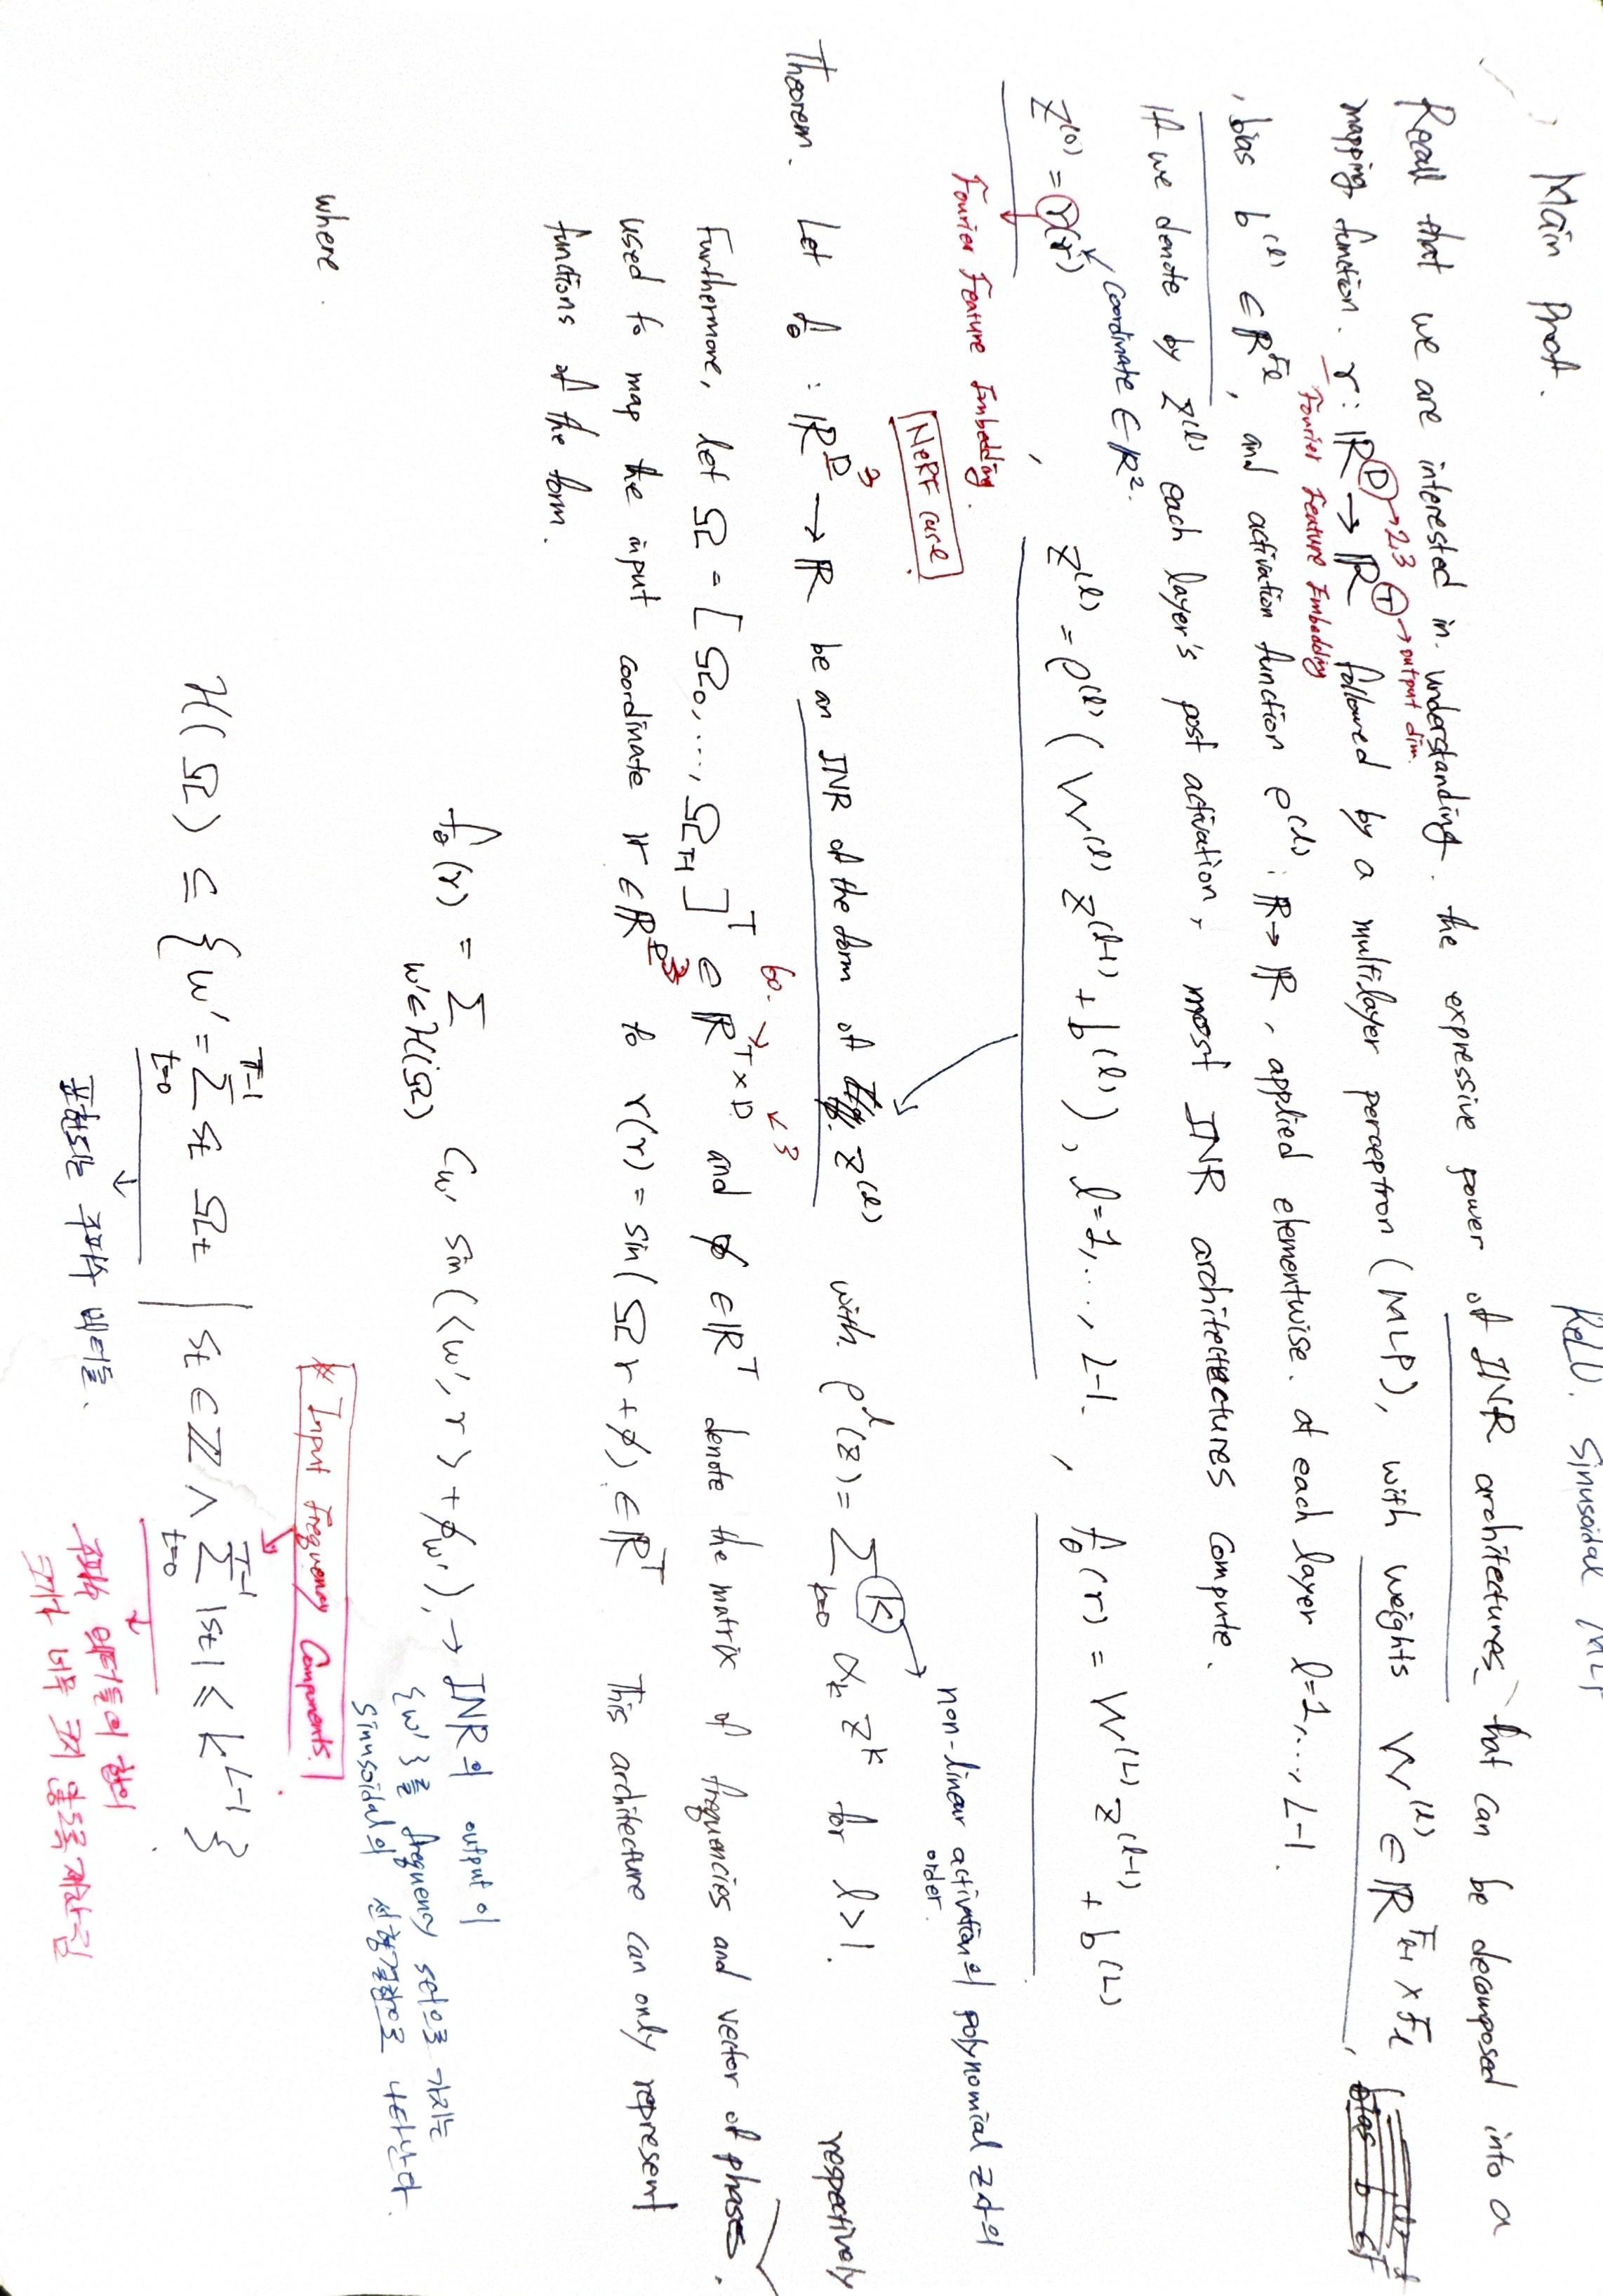 ReLU. Sinusoidal MLP
Main Proof.
Recall that we are interested in. understanding. the expressive power of INR architectures that can be decomposed into a
→ 2,3 → output dim.
mapping function. γ : ℝ^D → ℝ^T followed by a multilayer perceptron (MLP), with weights W^(l) ∈ ℝ^{F_{l-1} × F_l},
Fourier Feature Embedding
, bias b^(l) ∈ ℝ^{F_l}, and activation function ρ^(l) : ℝ → ℝ, applied elementwise. at each layer l=1,..., L-1.
If we denote by z^(l) each layer's post activation, most INR architectectures compute.
Coordinate ∈ ℝ².
z^(0) = γ(r) , z^(l) = ρ^(l) ( W^(l) z^(l-1) + b^(l) ), l=1,..., L-1. , f_θ(r) = W^(L) z^(l-1) + b^(L)
Fourier Feature Embedding.
NeRF case.
non-linear activation의 polynomial 근사의
order.
Theorem. Let f_θ : ℝ^D → ℝ be an INR of the form of z^(l) with. ρ^l(z) = Σ_{k=0}^K α_k z^k for l>1.
3
respectively
60. → ↙ 3
Furthermore, let Ω = [Ω_0, ..., Ω_{T-1}]^T ∈ ℝ^{T×D} and φ ∈ ℝ^T denote the matrix of frequencies and vector of phases.
used to map the input coordinate r ∈ ℝ^D to γ(r) = sin(Ωr + φ) ∈ ℝ^T This architecture can only represent
3
functions of the form.
f_θ(r) = Σ_{w'∈H(Ω)} C_w' sin(⟨w', r⟩ + φ_w'), → INR의 output이
{w'}를 frequency set으로 가지는
sinusoidal의 선형결합으로 나타난다.
where.
※ Input Frequency Components.
H(Ω) ⊆ { w' = Σ_{t=0}^{T-1} s_t Ω_t | s_t ∈ ℤ ∧ Σ_{t=0}^{T-1} |s_t| ≤ K^{L-1} }.
표현되는 주파수 벡터들.
주파수 벡터들의 합의
크기가 너무 크지 않도록 제한됨